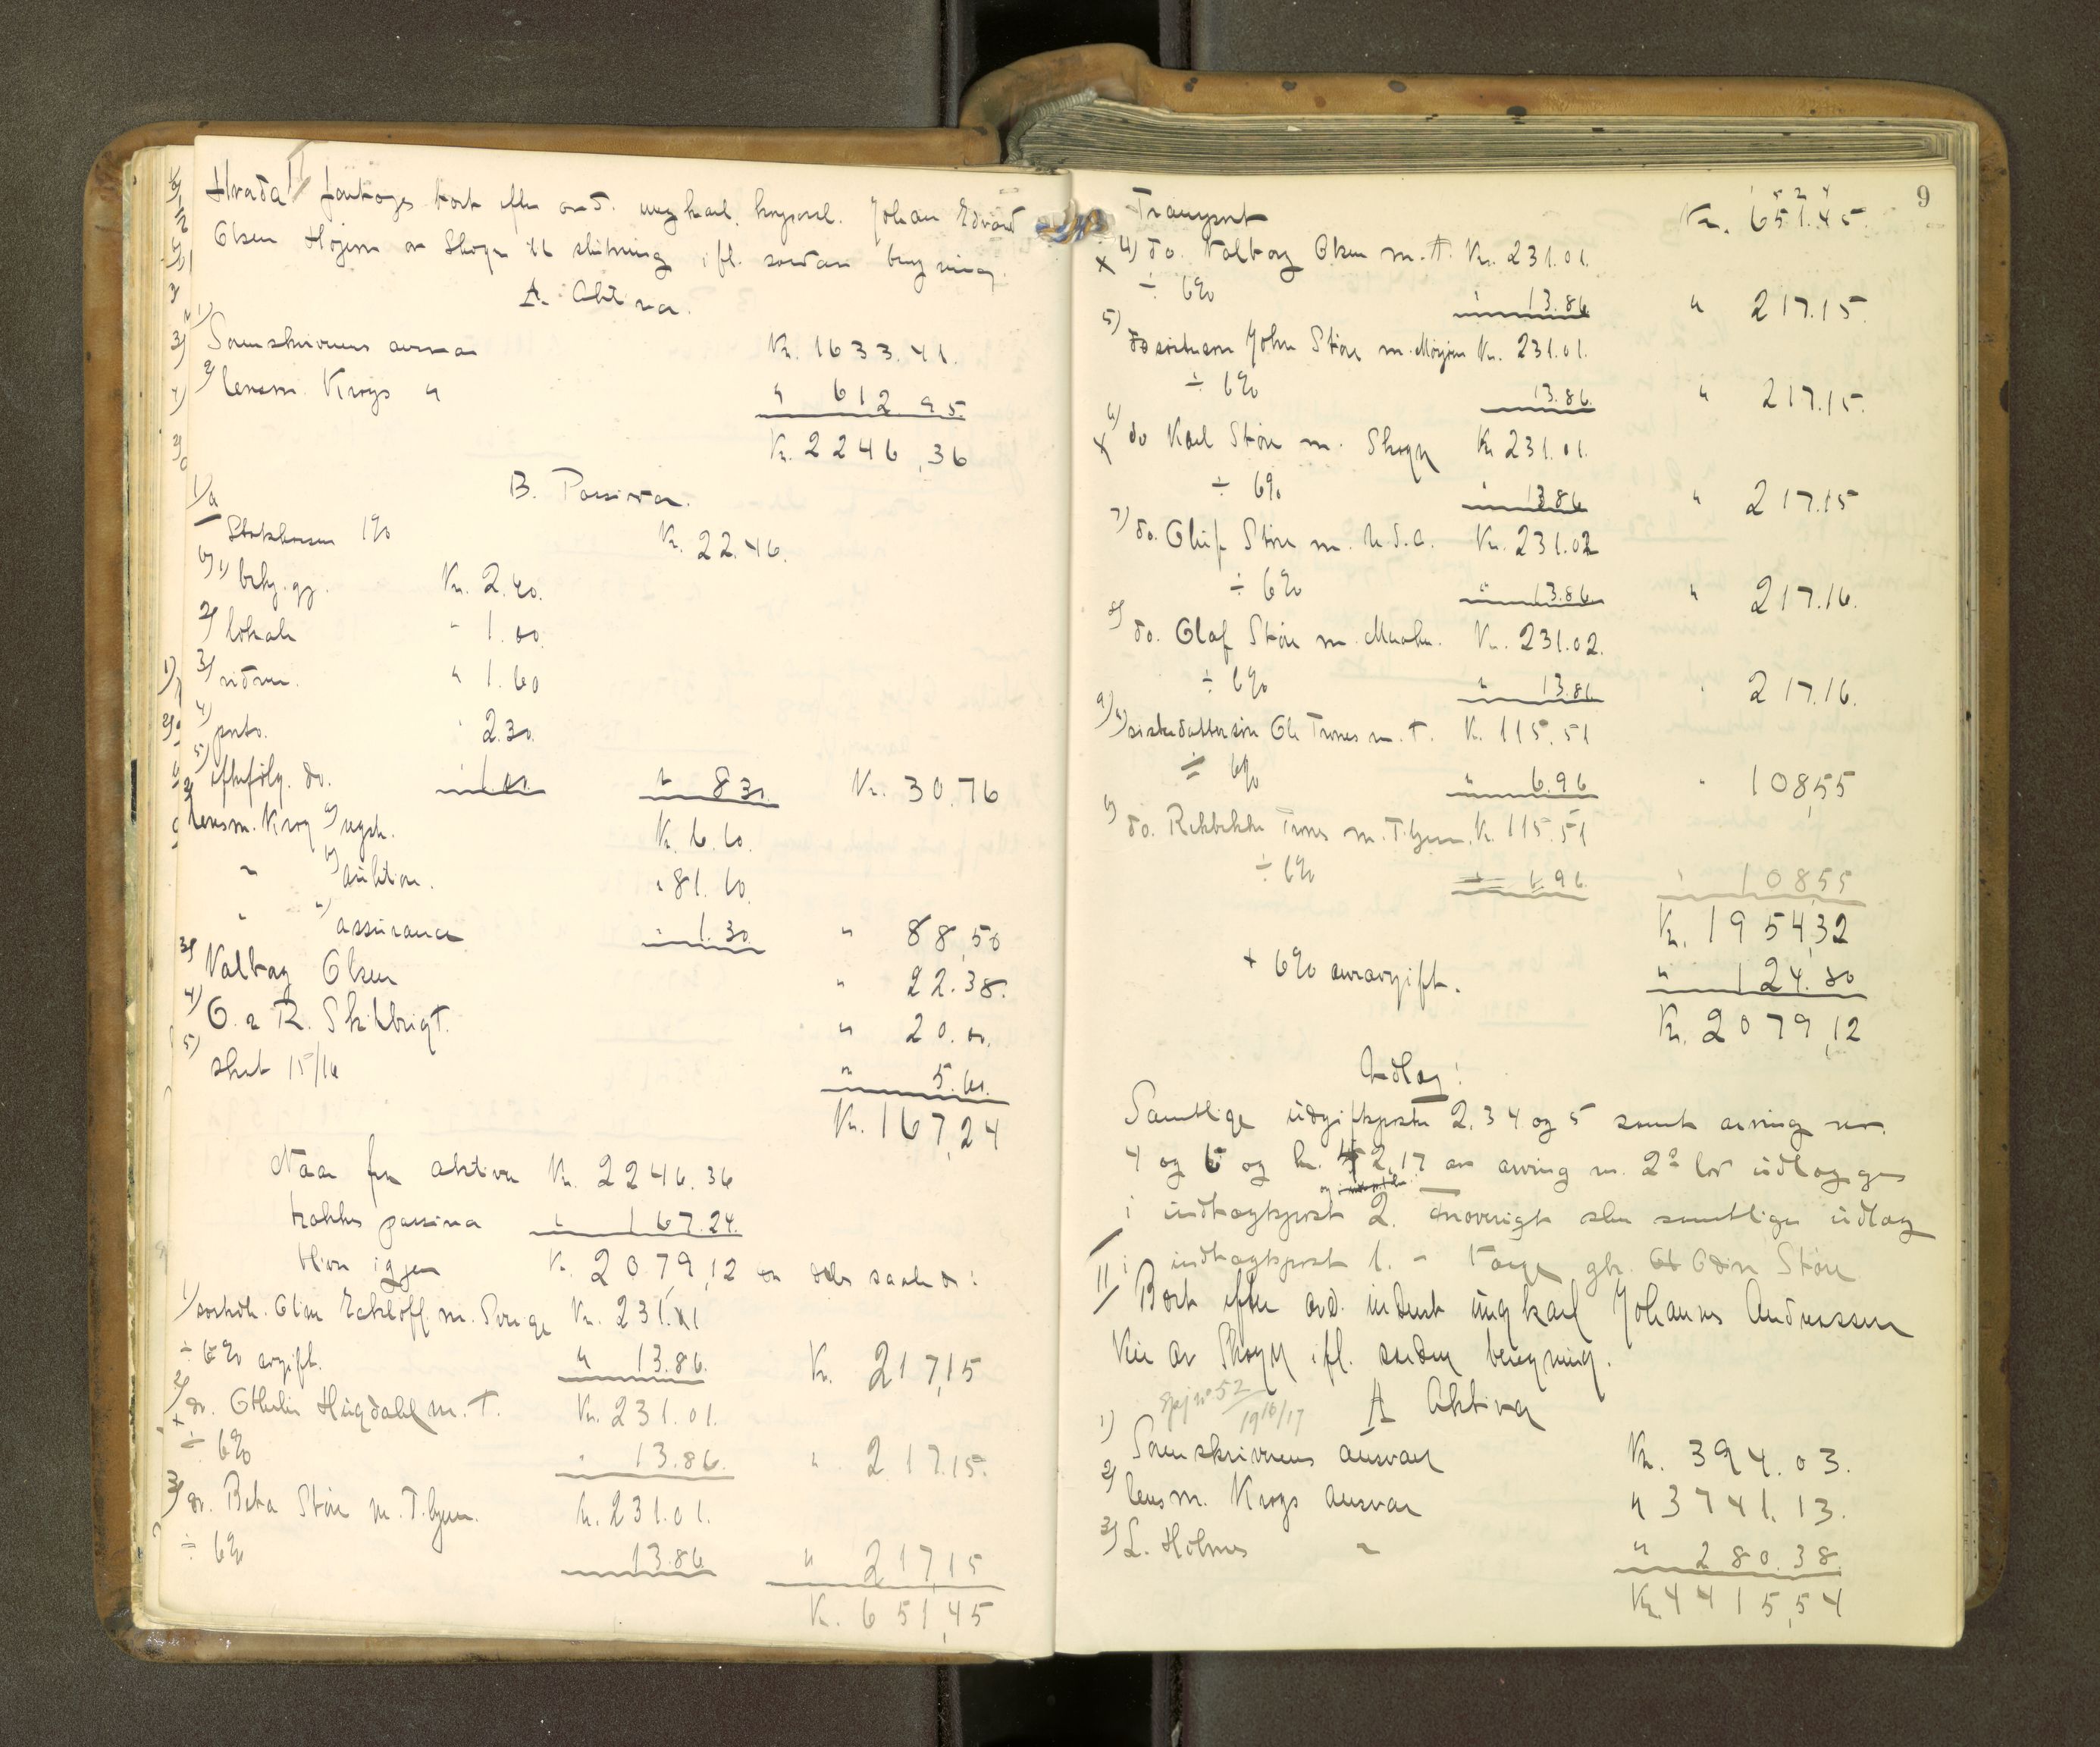 foretoges bort efter avd. ungkarl Johan Edvard
Olsen Højem av Skogn til slutning ifl. saadan beregning.
A. Aktiva.
1) Sorenskriverens ansvar Kr. 1633.41.
2) lensm. Krogs " " 612.95.
Kr. 2246,36
B. Passiva.
1) a Statskassen 1% Kr. 22.46.
b) 1) bekj.gj. Kr. 2.40.
2) lokale " 1.00.
3) vidner. " 1.60
4) porto. " 2.30.
5) efterfølg. do. " 1.00. " 8.30. Kr. 30.76
2) lensm. Krog a) regst. Kr. 6.60.
" b) auktion. " 81.60.
" c) assurance " 1.30. " 88,50
3) Valborg Olsen " 22.38.
4) O. a R. Skilbrigt. " 20.00.
5) skat 15/16 " 5.60.
Kr. 167,24
Naar fra aktiva Kr. 2246.36
trækkes passiva " 167.24.
blir igjen Kr. 2079,12 som deles saaledes:
1) søsterdtr. Oline Eckloff m. Sverige Kr. 231.01
÷ 6% avgift. " 13.86. Kr. 217,15
2) do. Othelie Haugdahl m. T. Kr. 231.01.
÷ 6% " 13.86. " 217.15.
3) do. Berta Støre m. T.hjem. Kr. 231.01.
÷ 6% 13.86 " 217,15
Kr. 651,45
9
Transport Kr. 651.45.
4) do. Valborg Olsen m. T. Kr. 231.01.
÷ 6% " 13.86 " 217.15.
5) do søstersøn John Støre m. Mosjøen Kr. 231.01.
÷ 6% 13.86. " 217.15.
6) do Karl Støre m. Skogn Kr 231.01.
÷ 6% " 13.86 " 217.15
7) do. Oluf Støre m. U.S.A. Kr. 231.02
÷ 6% " 13.86. " 217.16.
8) do. Olaf Støre m. Kr. 231.02.
÷ 6% " 13.86 " 217.16.
9) a) søsterdattersøn Ole Trones m. T. Kr. 115.51
÷ 6% " 6.96 " 108,55
b) do. Rebekka Trones m. T.hjem. Kr. 115.51
÷ 6% " 6.96. " 108,55
Kr. 1954,32
+ 6% arveavgift. " 124.80
Kr. 2079,12
Udlæg:
Samtlige udgiftsposter 2, 3 4 og 5 samt arving nr.
4 og 6 og kr. 2,17 av arving nr. 2 blir udlægges
i indtægtspost 2. Forøvrigt sker samtlige udlæg
i indtægtspost 1. - Odin Støre
II Bort efter avd. inderst ungkarl Johannes Andreassen
av Skogn ifl. saadan beregning.
Epj nr 52 1916/17
A Aktiva
1) Sorenskriverens ansvar Kr. 394.03.
2) lensm. Krogs ansvar " 3741.13.
3) L. Holmes " " 280.38.
Kr. 4415,54